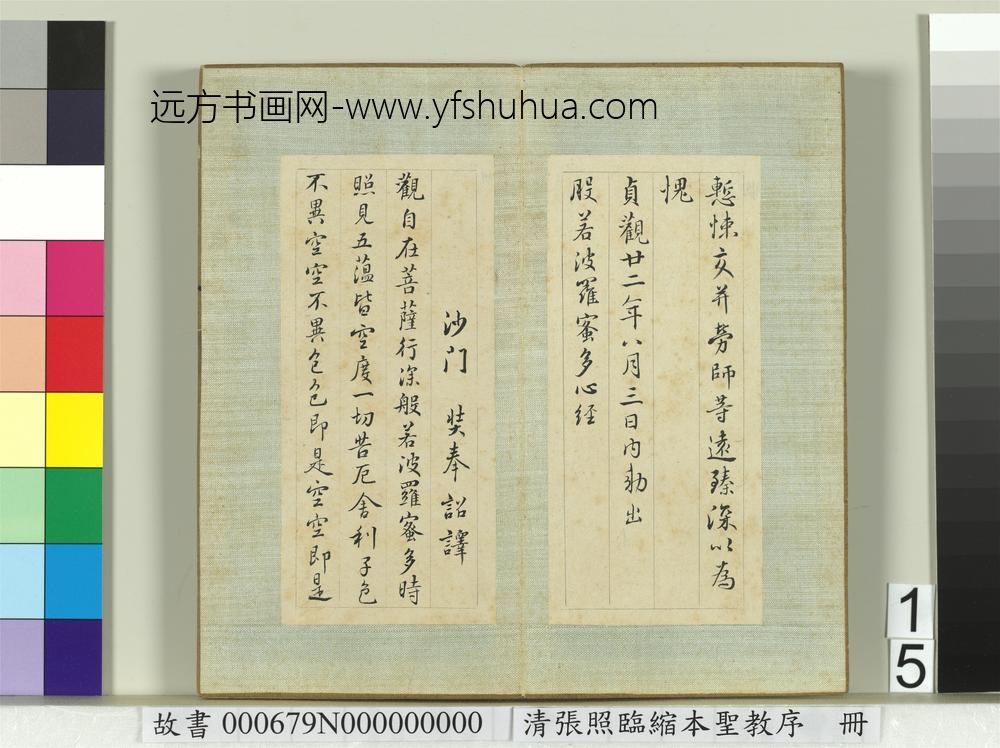 远方书画网-www.yfshuhua.com
慙悚交并勞師等遠臻深以為
愧
貞觀廿二年八月三日內勅出
般若波羅蜜多心經
沙門 奘奉詔譯
觀自在菩薩行深般若波羅蜜多時
照見五蘊皆空度一切苦厄舍利子色
不異空空不異色色即是空空即是
1
5
故書 000679N000000000 清張照臨縮本聖教序 冊